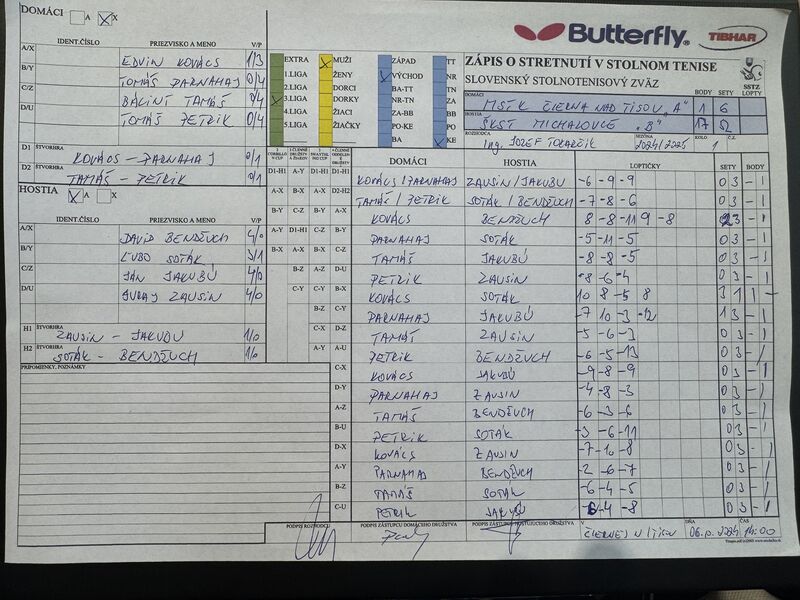 DOMÁCI A X
Butterfly TIBHAR
IDENT.ČÍSLO PRIEZVISKO A MENO V/P
A/X EDVIN KOVÁCS 1/3
B/Y TOMÁŠ PARNAHAJ 0/4
C/Z BÁLINT TAMÁŠ 0/4
D/U TOMÁŠ PETRIK 0/4
D1 ŠTVORHRA KOVÁCS - PARNAHAJ 0/1
D2 ŠTVORHRA TAMÁŠ - PETRIK 0/1
HOSTIA A X
IDENT.ČÍSLO PRIEZVISKO A MENO V/P
A/X DAVID BENDŽUCH 4/0
B/Y ĽUBO SOTÁK 3/1
C/Z JÁN JAKUBŮ 4/0
D/U JURAJ ZAUSIN 4/0
H1 ŠTVORHRA ZAUSIN - JAKUBU 1/0
H2 ŠTVORHRA SOTÁK - BENDŽUCH 1/0
PRIPOMIENKY, POZNÁMKY
EXTRA MUŽI ZÁPAD TT
1.LIGA ŽENY VÝCHOD NR
2.LIGA DORCI BA-TT TN
3.LIGA DORKY NR-TN ZA
4.LIGA ŽIACI ZA-BB BB
5.LIGA ŽIAČKY PO-KE PO
BA KE
ZÁPIS O STRETNUTÍ V STOLNOM TENISE
SLOVENSKÝ STOLNOTENISOVÝ ZVÄZ
SSTZ
DOMÁCI BODY SETY LOPTY
MSTK ČIERNA NAD TISOU "A" 1 6
HOSTIA
ŠKST MICHALOVCE "B" 17 52
ROZHODCA Ing. JOZEF TOKARČIK SEZÓNA 2024/2025 KOLO 1 Č.Z.
DOMÁCI HOSTIA LOPTIČKY SETY BODY
D1-H1 A-Y D1-H1 KOVÁCS / PARNAHAJ ZAUSIN / JAKUBU -6 -9 -9 0 3 - 1
A-X B-X D2-H2 TAMÁŠ / PETRIK SOTÁK / BENDŽUCH -7 -8 -6 0 3 - 1
B-Y C-Z B-Y A-X KOVÁCS BENDŽUCH 8 -8 -11 9 -8 2 3 - 1
A-Y D1-H1 C-Z B-Y PARNAHAJ SOTÁK -5 -11 -5 0 3 - 1
B-X A-X A-X C-Z TAMÁŠ JAKUBŮ -8 -8 -5 0 3 - 1
B-Z A-Z D-U PETRIK ZAUSIN -8 -6 -4 0 3 - 1
C-Y C-Y B-X KOVÁCS SOTÁK 10 8 -5 8 3 1 1 -
B-Z C-Y PARNAHAJ JAKUBŮ -7 10 -3 -12 1 3 - 1
C-X D-Z TAMÁŠ ZAUSIN -5 -6 -3 0 3 - 1
A-Y A-U PETRIK BENDŽUCH -6 -5 -13 0 3 - 1
C-X KOVÁCS JAKUBŮ -9 -8 -9 0 3 - 1
D-Y PARNAHAJ ZAUSIN -4 -8 -3 0 3 - 1
A-Z TAMÁŠ BENDŽUCH -6 -3 -6 0 3 - 1
B-U PETRIK SOTÁK -3 -6 -11 0 3 - 1
D-X KOVÁCS ZAUSIN -7 -10 -8 0 3 - 1
A-Y PARNAHAJ BENDŽUCH -2 -6 -7 0 3 - 1
B-Z TAMÁŠ SOTÁK -6 -4 -5 0 3 - 1
C-U PETRIK JAKUBŮ -6 -4 -8 0 3 - 1
PODPIS ROZHODCU PODPIS ZÁSTUPCU DOMÁCEHO DRUŽSTVA PODPIS ZÁSTUPCU HOSŤUJÚCEHO DRUŽSTVA V DŇA ČAS
14:00